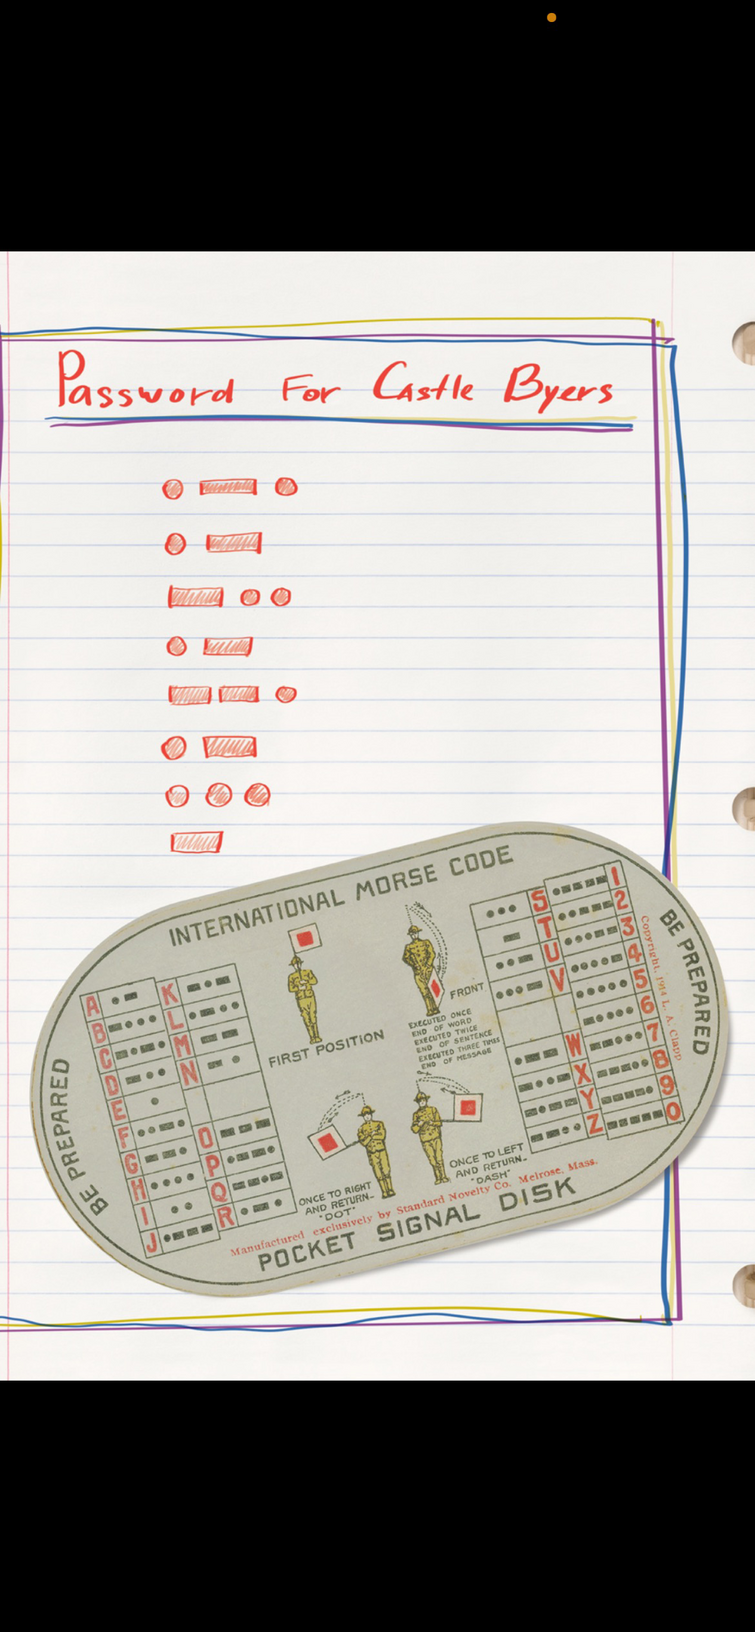 Password For Castle Byers
INTERNATIONAL MORSE CODE
A
B
C
D
E
F
G
H
I
J
K
L
M
N
O
P
Q
R
FIRST POSITION
FRONT
EXECUTED ONCE
END OF WORD
EXECUTED TWICE
END OF SENTENCE
EXECUTED THREE TIMES
END OF MESSAGE
S
T
U
V
W
X
Y
Z
1
2
3
4
5
6
7
8
9
0
Copyright, 1914 L. A. Clapp
BE PREPARED
BE PREPARED
ONCE TO RIGHT
AND RETURN-
"DOT"
ONCE TO LEFT
AND RETURN-
"DASH"
Manufactured exclusively by Standard Novelty Co. Melrose, Mass.
POCKET SIGNAL DISK